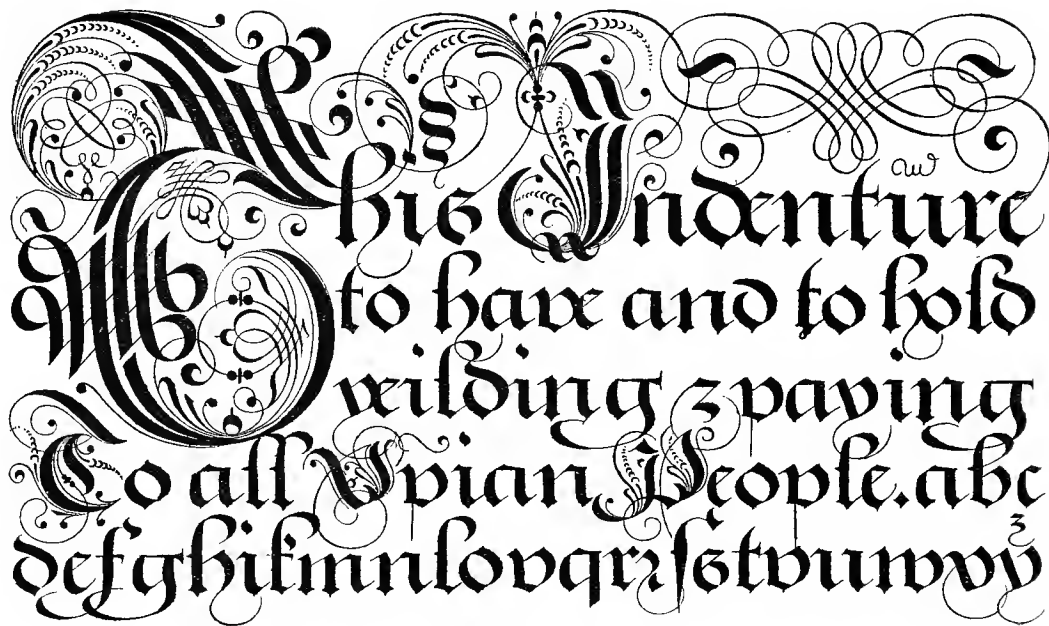 This Indenture
to have and to hold
yeilding & paying
To all Xpian People. abc
defghiklmnopqrꝛſstvuwxyz